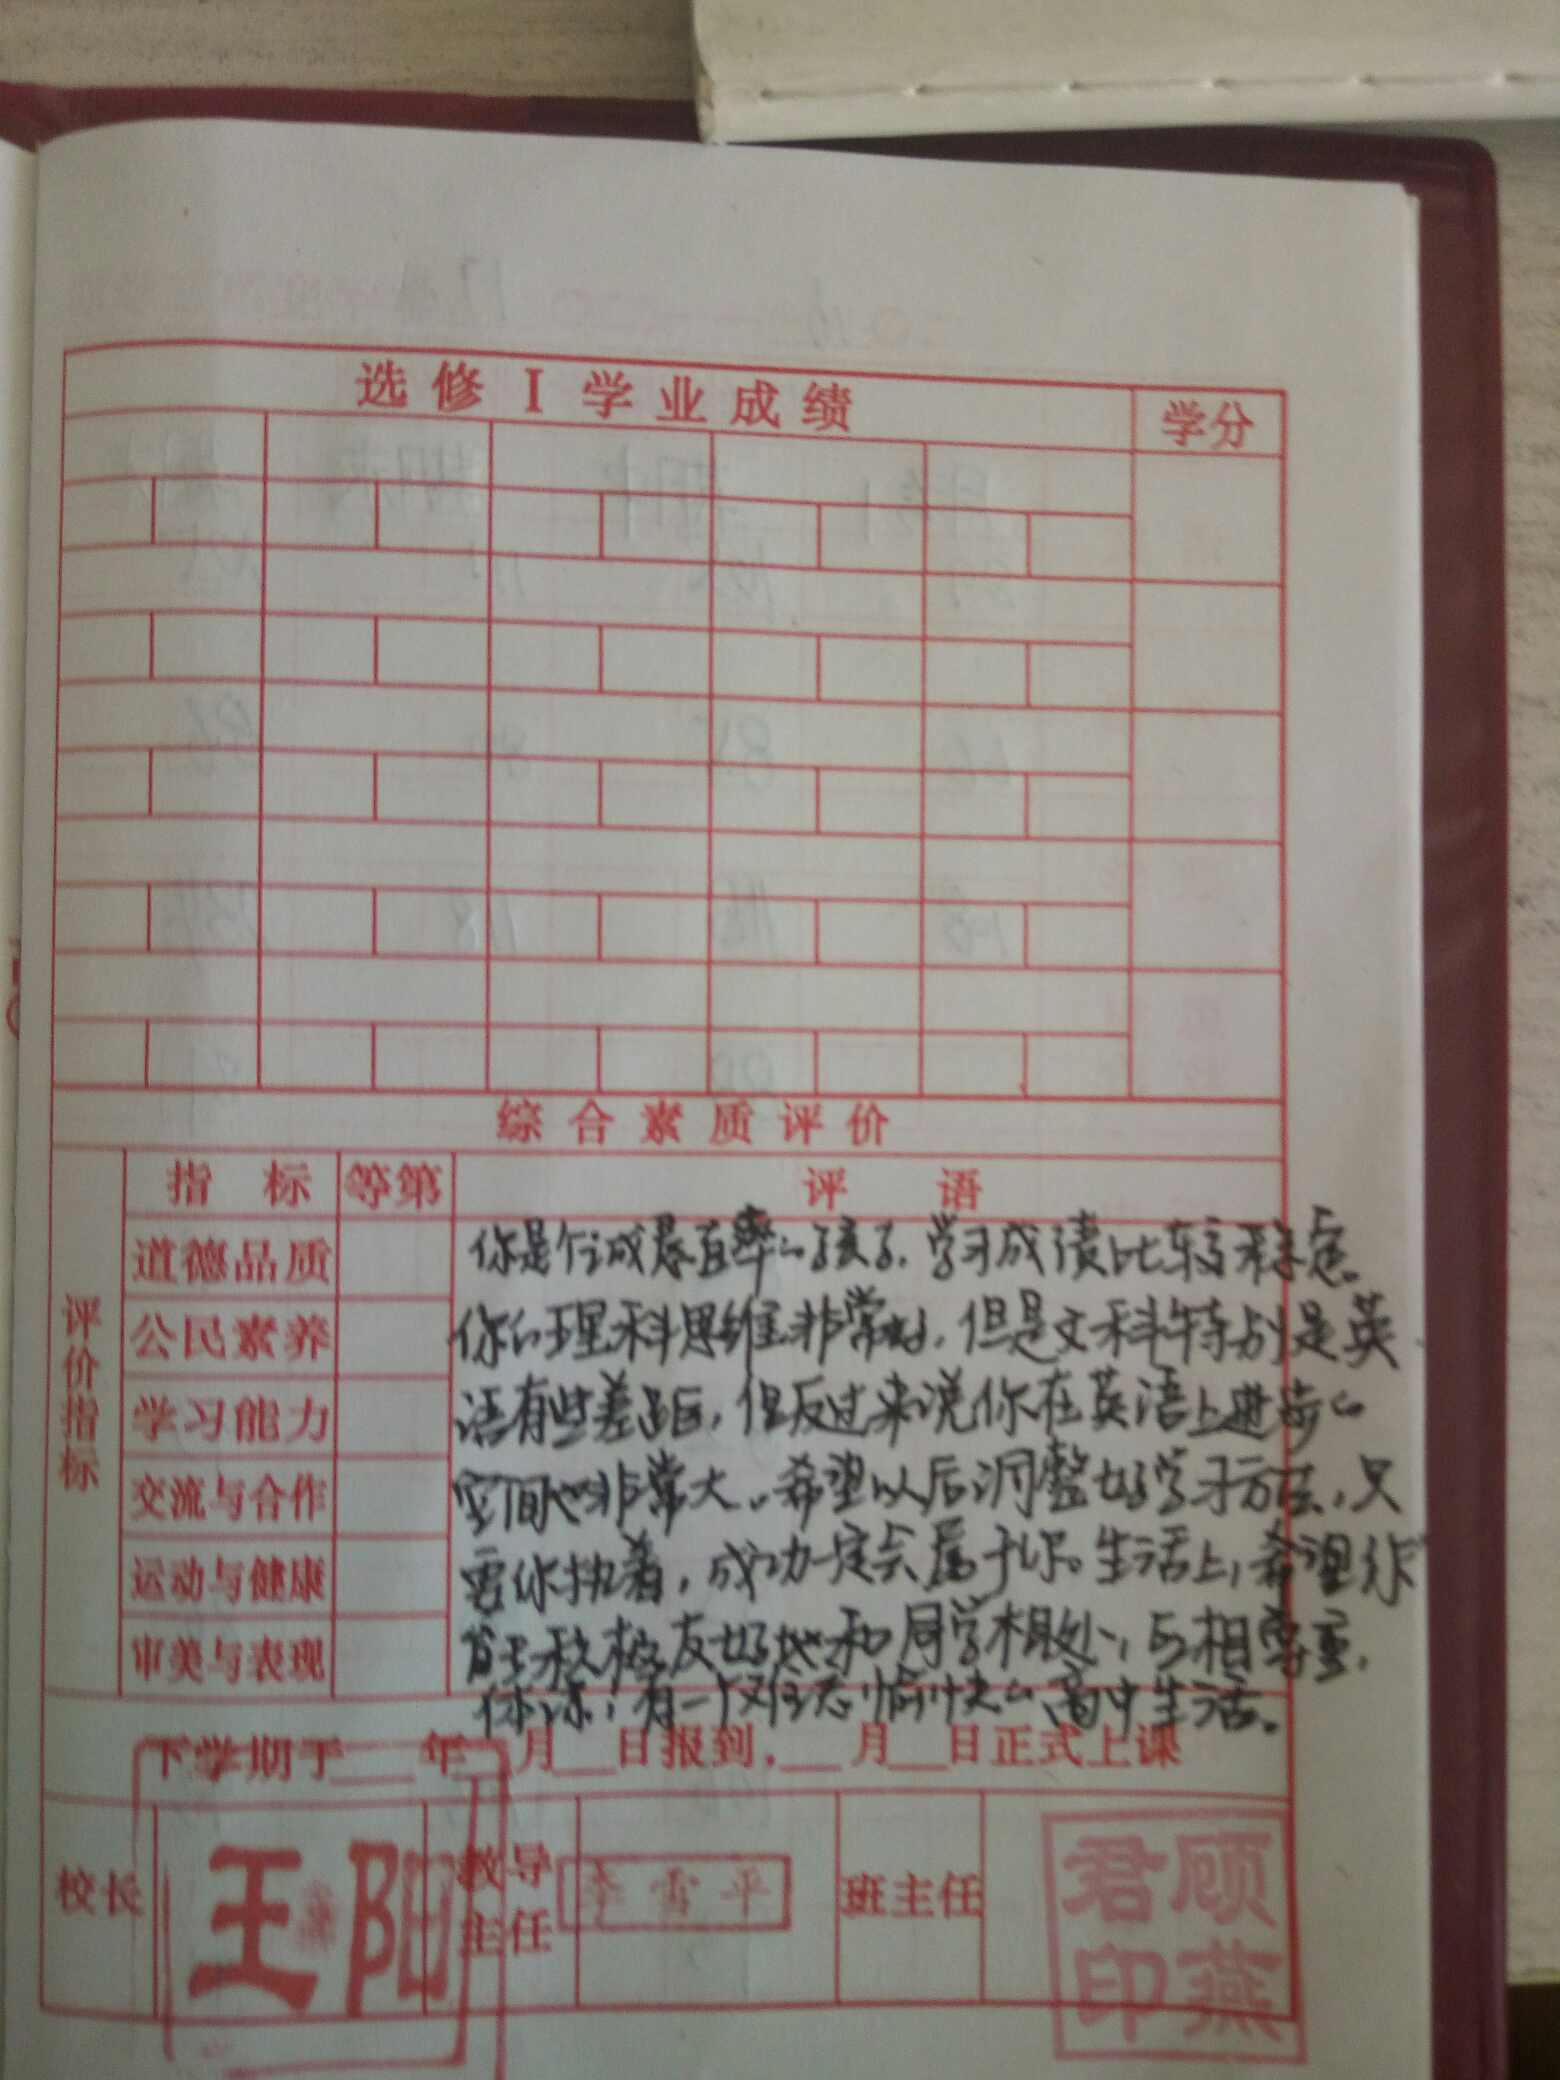 选修Ⅰ学业成绩
学分
综合素质评价
评价指标
指标 等第 评语
道德品质
公民素养
学习能力
交流与合作
运动与健康
审美与表现
你是个诚恳直率的孩子，学习成绩比较稳定。
你的理科思维非常好，但是文科特别是英
语有些差距，但反过来说你在英语上进步的
空间也非常大。希望以后调整好学习方法，只
要你执着，成功一定会属于你。生活上，希望你
能积极友好地和同学相处，互相尊重，
你，有一个愉快的高中生活。
下学期于___年__月__日报到，__月__日正式上课
校长
王阳
教导主任
李雪平
班主任
顾燕君印